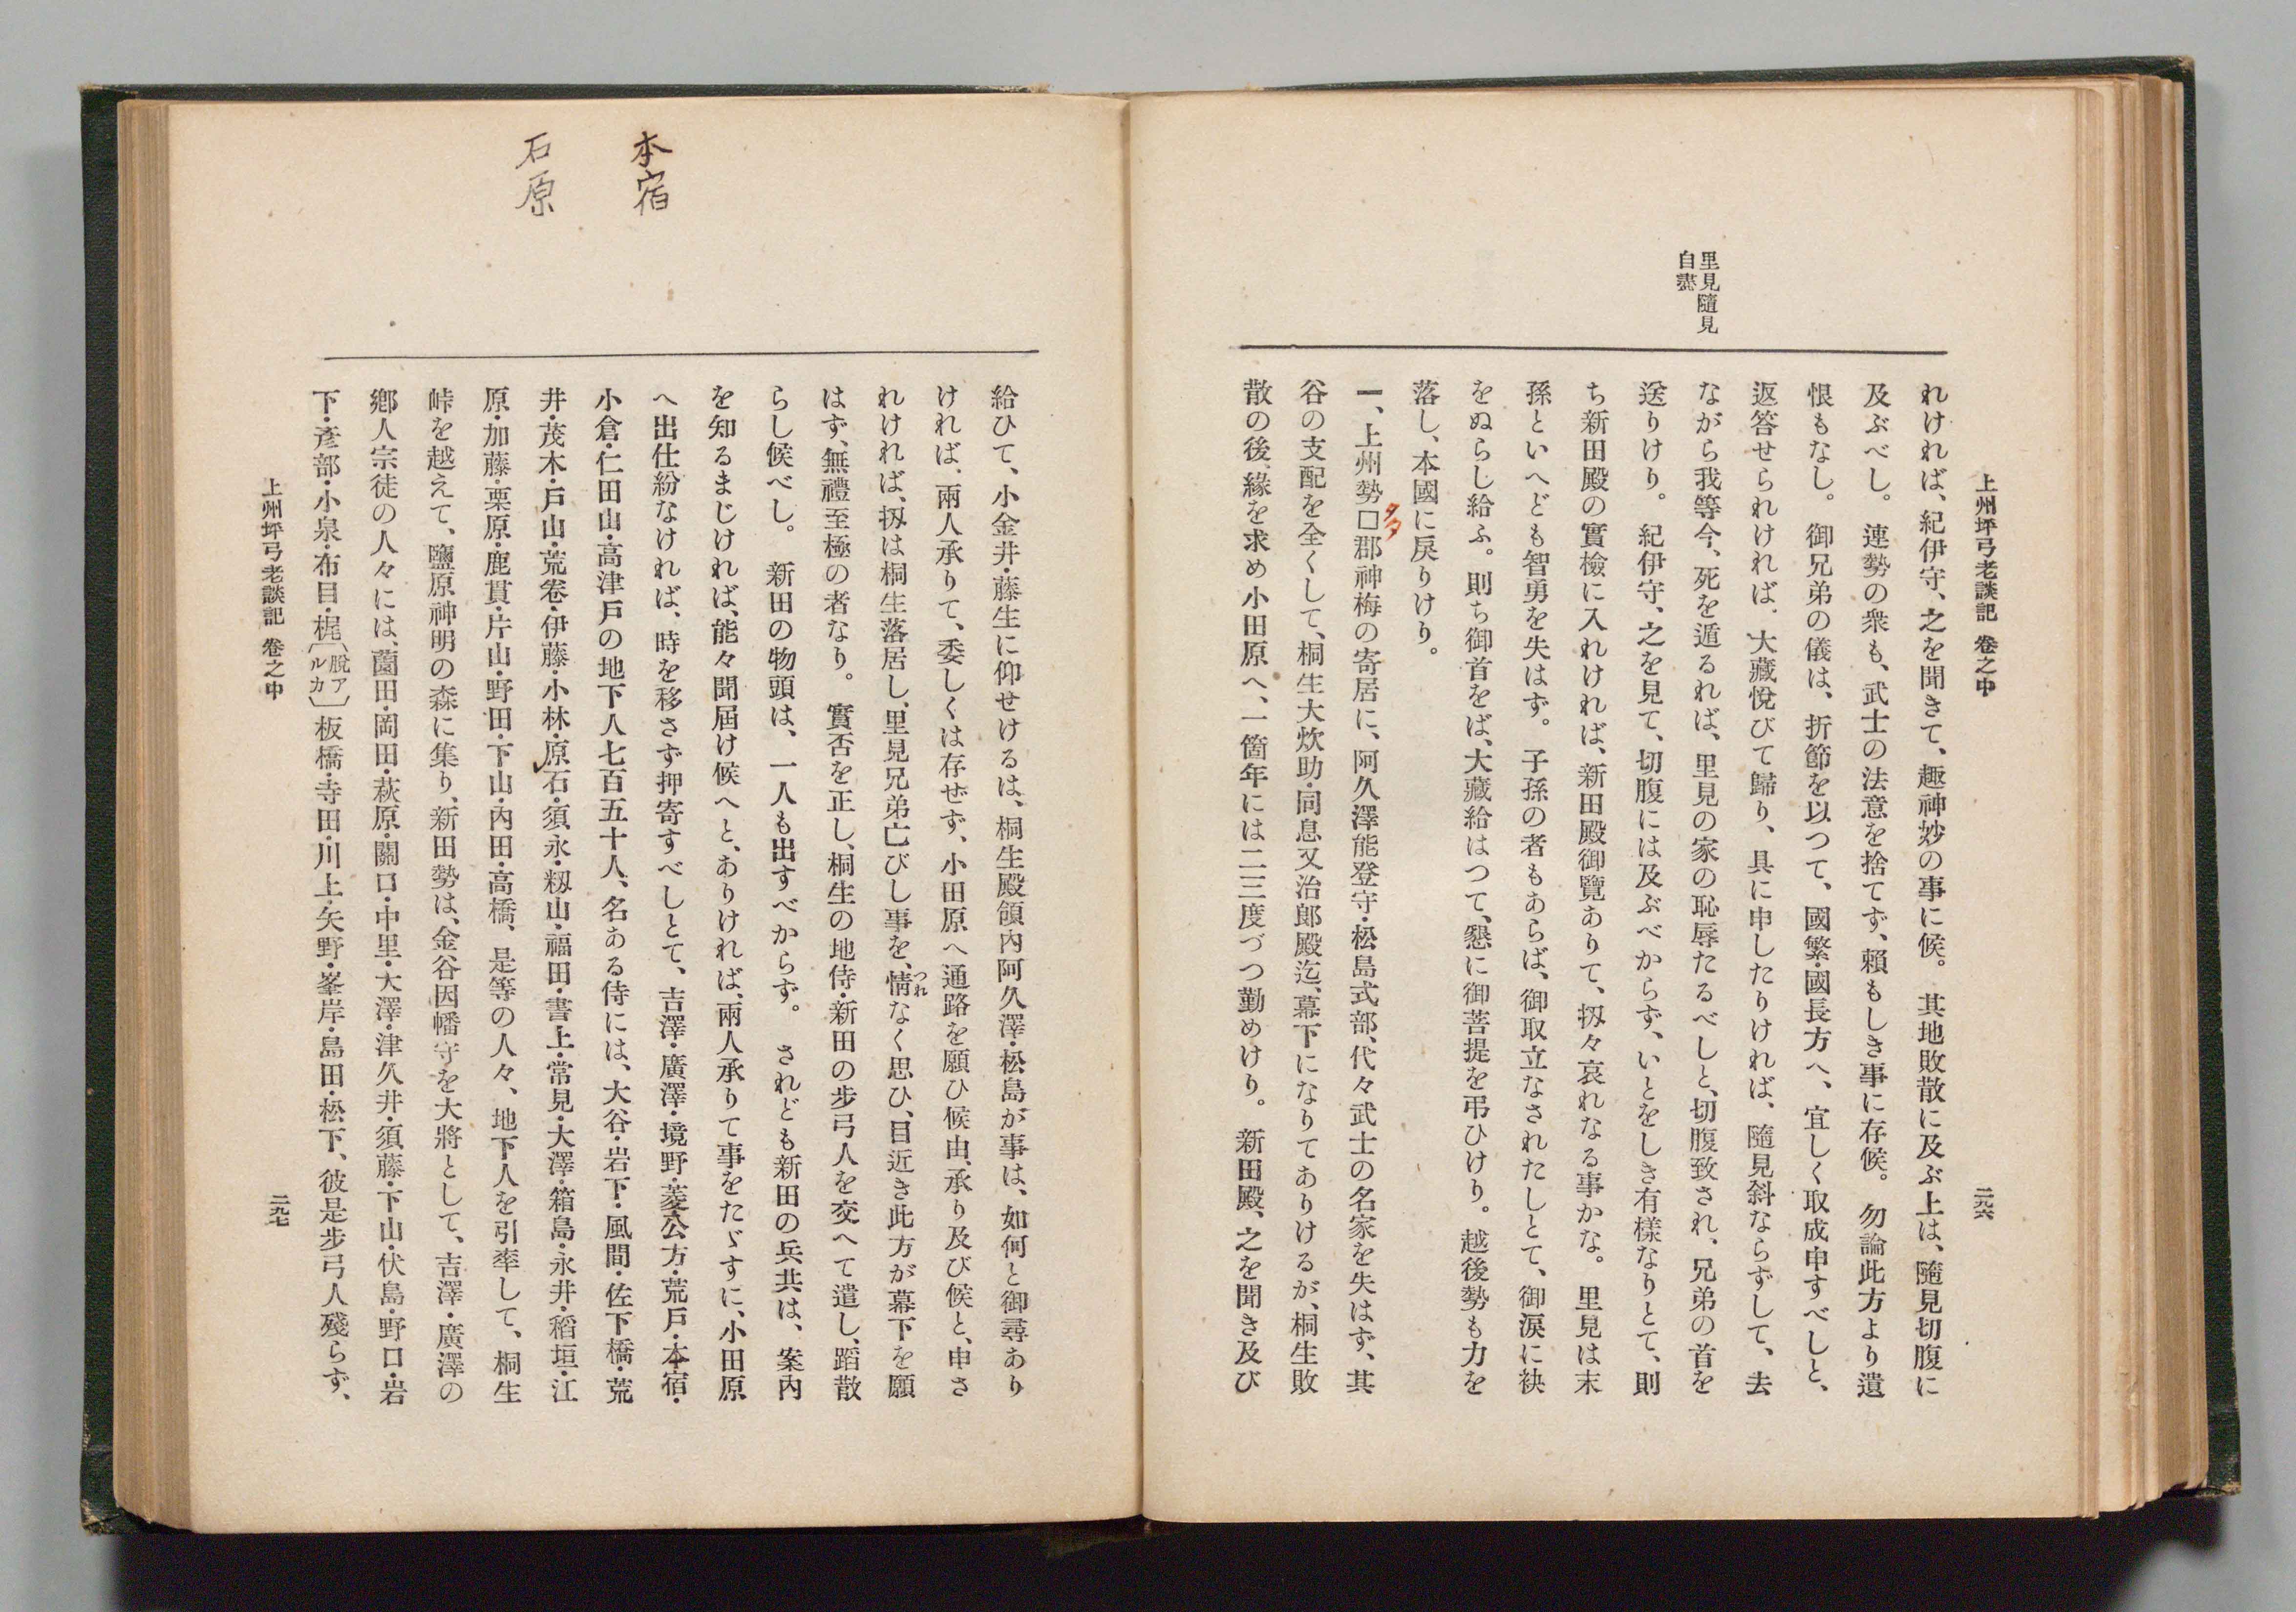 上州坪弓老談記 卷之中
二九六
里見隨見
自盡
れければ、紀伊守、之を聞きて、趣神妙の事に候。其地敗散に及ぶ上は、隨見切腹に
及ぶべし。連勢の衆も、武士の法意を捨てず、賴もしき事に存候。勿論此方より遺
恨もなし。御兄弟の儀は、折節を以つて、國繁・國長方へ、宜しく取成申すべしと、
返答せられければ、大藏悅びて歸り、具に申したりければ、隨見斜ならずして、去
ながら我等今、死を遁るれば、里見の家の恥辱たるべしと、切腹致され、兄弟の首を
送りけり。紀伊守、之を見て、切腹には及ぶべからず、いとをしき有樣なりとて、則
ち新田殿の實檢に入れければ、新田殿御覽ありて、扨々哀れなる事かな。里見は末
孫といへども智勇を失はず。子孫の者もあらば、御取立なされたしとて、御淚に袂
をぬらし給ふ。則ち御首をば、大藏給はつて、懇に御菩提を弔ひけり。越後勢も力を
落し、本國に戾りけり。
一、上州勢□郡神梅の寄居に、阿久澤能登守・松島式部、代々武士の名家を失はず、其
多
谷の支配を全くして、桐生大炊助・同息又治郞殿迄、幕下になりてありけるが、桐生敗
散の後、緣を求め小田原へ、一箇年には二三度づつ勤めけり。新田殿、之を聞き及び
本宿
石原
給ひて、小金井・藤生に仰せけるは、桐生殿領內阿久澤・松島が事は、如何と御尋あり
ければ、兩人承りて、委しくは存ぜず、小田原へ通路を願ひ候由、承り及び候と、申さ
れければ、扨は桐生落居し、里見兄弟亡びし事を、情なく思ひ、目近き此方が幕下を願
つれ
はず、無禮至極の者なり。實否を正し、桐生の地侍・新田の步弓人を交へて遣し、蹈散
らし候べし。新田の物頭は、一人も出すべからず。されども新田の兵共は、案內
を知るまじければ、能々聞屆け候へと、ありければ、兩人承りて事をたゞすに、小田原
へ出仕紛なければ、時を移さず押寄すべしとて、吉澤・廣澤・境野・菱・公方・荒戶・本宿・
小倉・仁田山・高津戶の地下人七百五十人、名ある侍には、大谷・岩下・風間・佐下橋・荒
井・茂木・戶山・荒卷・伊藤・小林・原石・須永・籾山・福田・書上・常見・大澤・箱島・永井・稻垣・江
原・加藤・栗原・鹿貫・片山・野田・下山・內田・高橋、是等の人々、地下人を引率して、桐生
峠を越えて、鹽原神明の森に集り、新田勢は、金谷因幡守を大將として、吉澤・廣澤の
鄕人宗徒の人々には、薗田・岡田・萩原・關口・中里・大澤・津久井・須藤・下山・伏島・野口・岩
下・彥部・小泉・布目・梶〔脫アルカ〕板橋・寺田・川上・矢野・峯岸・島田・松下、彼是步弓人殘らず、
上州坪弓老談記 卷之中
二九七